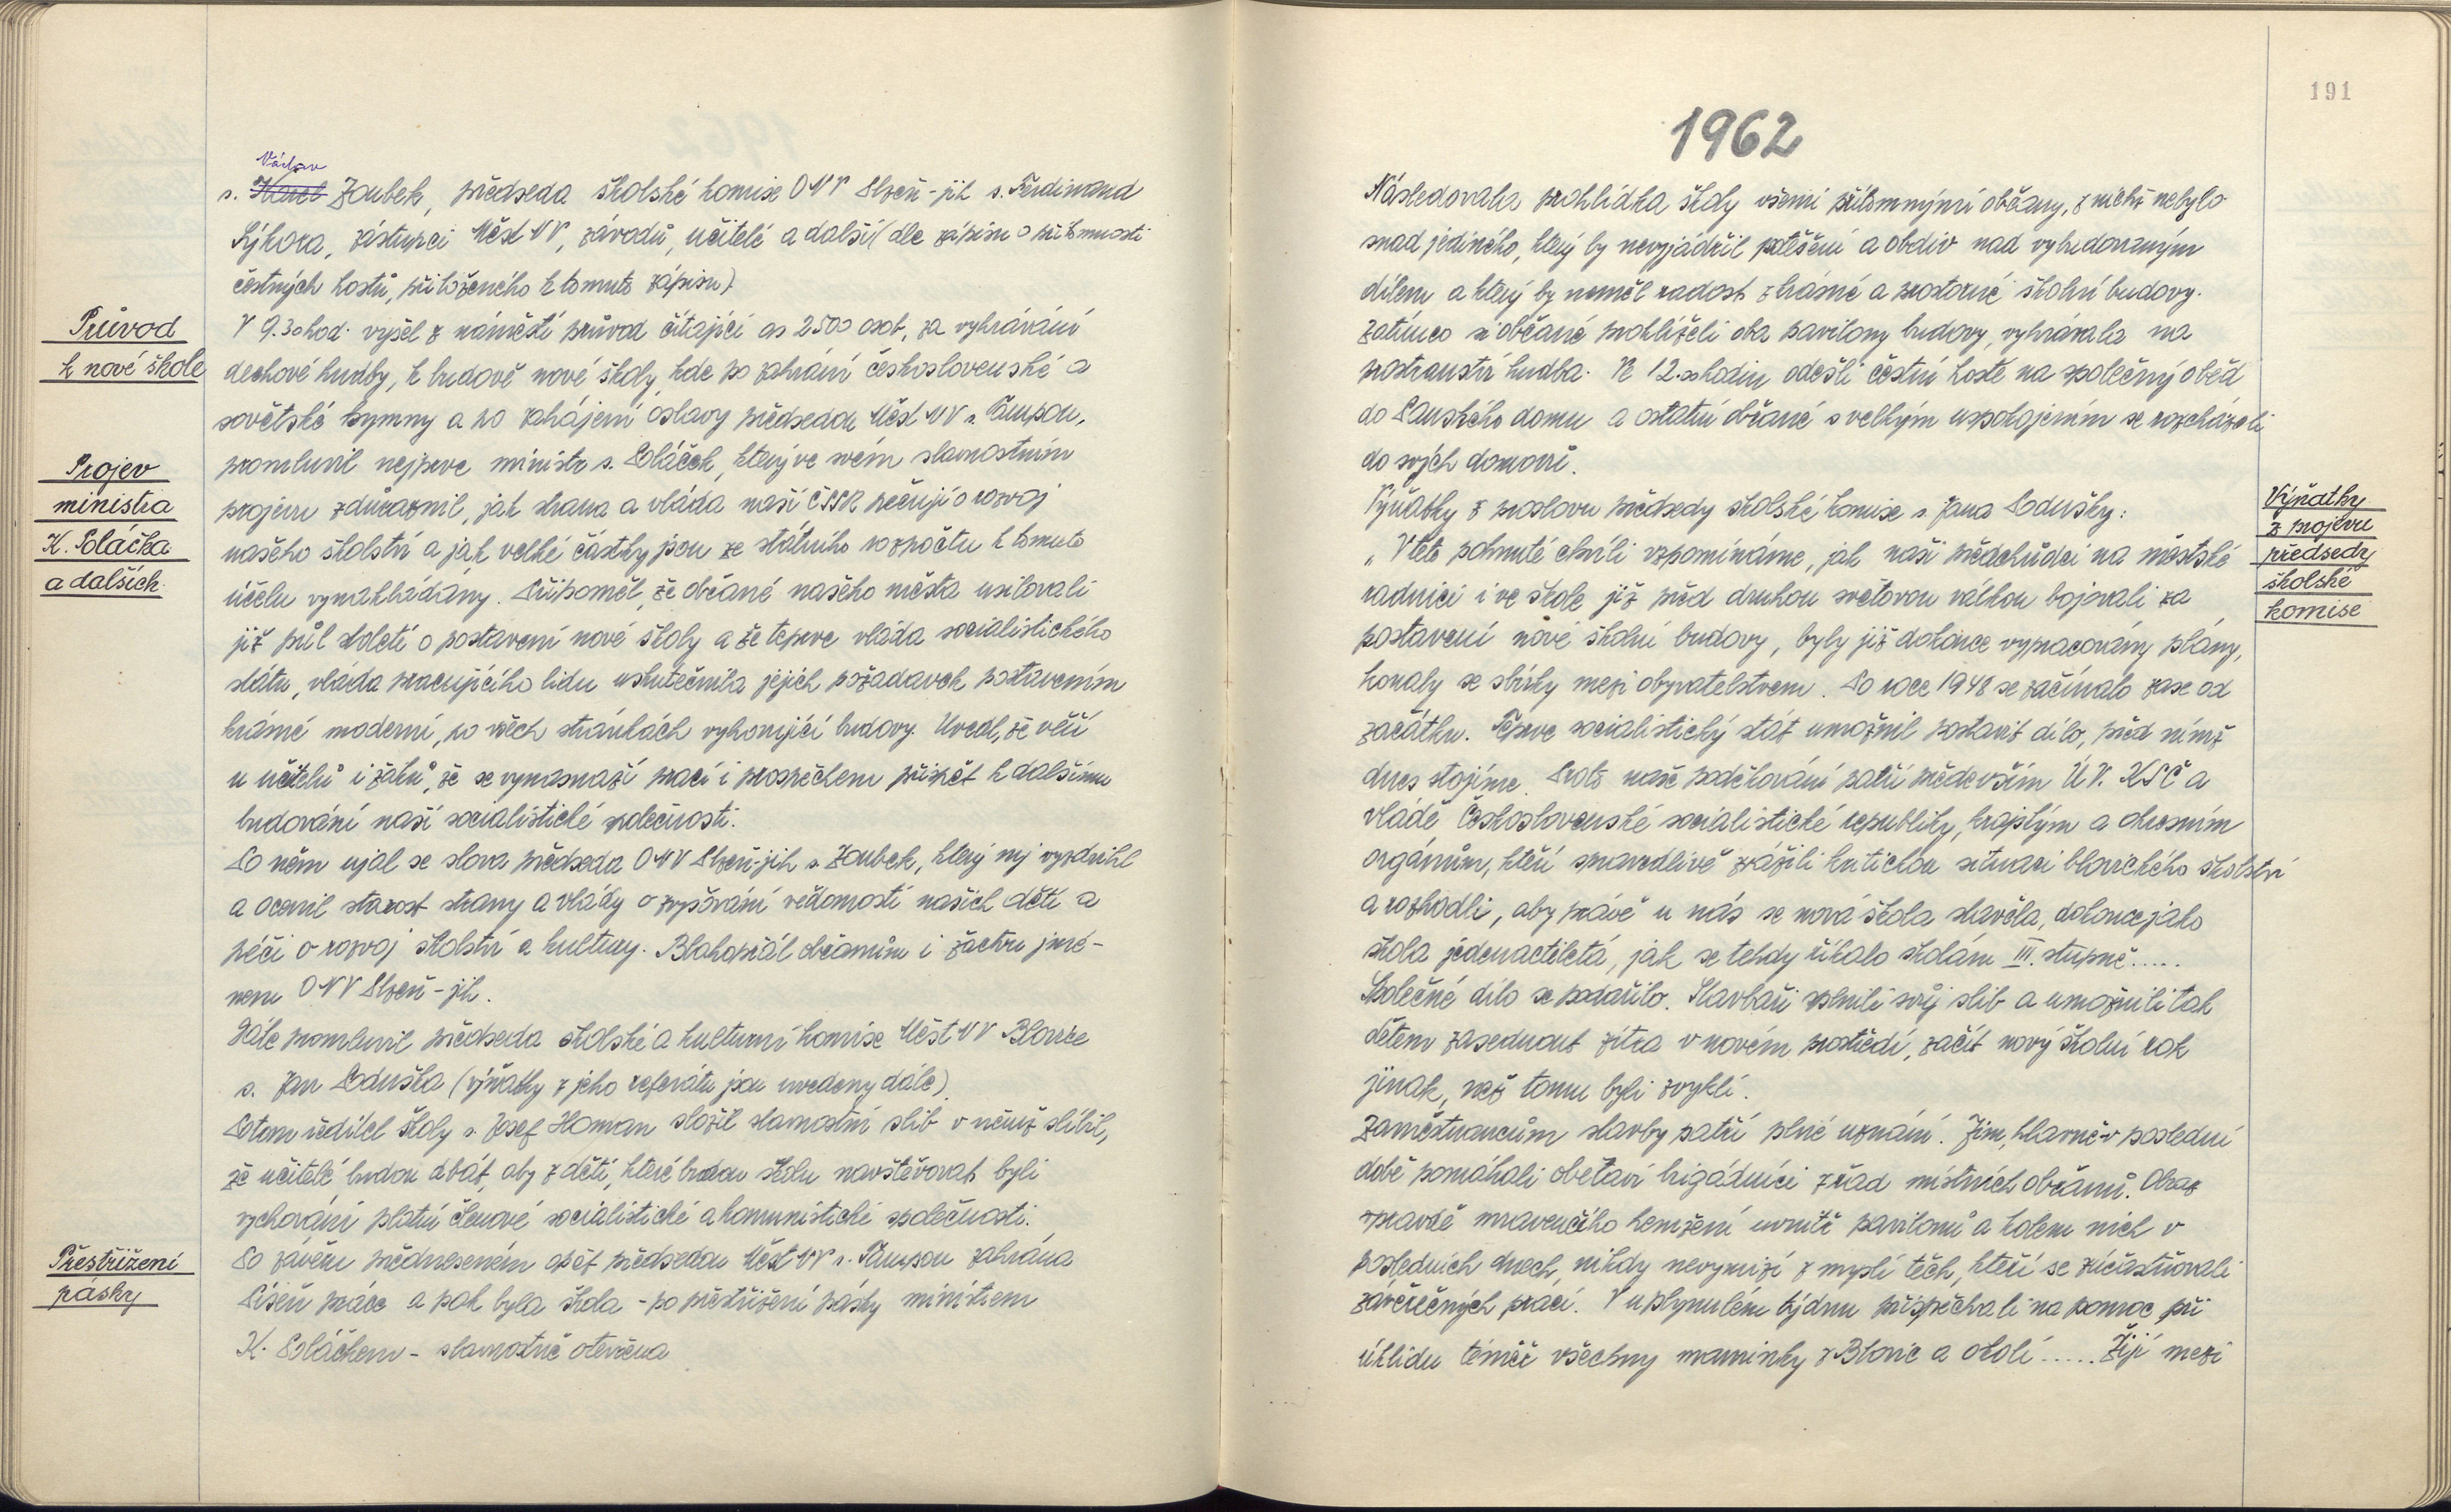 Václav
s. Karel Zoubek, předseda školské komise ONV Plzeň-jih s. Ferdinand
Sýkora, zástupci Měst NV, závodů, učitelé a další (dle zápisu o přítomnosti
čestných hostů, přiloženého k tomuto zápisu)
Průvod
k nové škole
V 9.30 hod. vyšel z náměstí průvod čítající as 2500 osob, za vyhrávání
dechové hudby, k budově nové školy, kde po zahrání československé a
sovětské hymny a po zahájení oslavy předsedou Měst NV s.
promluvil nejprve ministr s. Poláček, který ve svém slavnostním
Projev
ministra
K. Poláčka
a dalších.
projevu zdůraznil, jak strana a vláda naší ČSSR pečují o rozvoj
našeho školství a jak velké částky jsou ze státního rozpočtu k tomuto
účelu vynakládány. Připoměl, že občané našeho města usilovali
již půl století o postavení nové školy a že teprve vláda socialistického
státu, vláda pracujícího lidu uskutečnila jejich požadavek postavením
krásné moderní, po všech stránkách vyhovující budovy. Uvedl, že věří
u učitelů i žáků, že se vynasnaží prací i prospěchem přispět k dalšímu
budování naší socialistické společnosti.
Po něm ujal se slova předseda ONV Plzeň-jih s. Zoubek, který mj vyzdvihl
a ocenil starost strany a vlády o zvyšování vědomostí našich dětí a
péči o rozvoj školství a kultury. Blahopřál občanům i žactvu jmé-
nem ONV Plzeň-jih.
Dále promluvil předseda školské a kulturní komise Měst NV Blovice
s. Jan Poduška (výňatky z jeho referátu jsou uvedeny dále).
Potom ředitel školy s. Josef Homan složil slavnostní slib v němž slíbil,
že učitelé budou dbát, aby z dětí, které budou školu navštěvovat byli
vychováni platní členové socialistické a komunistické společnosti.
Přestřižení
pásky
Po závěru předneseném opět předsedou Měst NV s. zahrána
Píseň práce a pak byla škola - po přestřižení pásky ministrem
K. Poláčkem - slavnostně otevřena
191
1962
Následovala prohlídka školy všemi přítomnými občany, z nichž nebylo
snad jediného, který by nevyjádřil potěšení a obdiv nad vybudovaným
dílem a který by neměl radost z krásné a prostorné školní budovy.
Zatímco si občané prohlíželi oba pavilony budovy, vyhrávala na
prostranství hudba. Ve 12.00 hodin odešli čestní hosté na společný oběd
do Panského domu a ostatní občané s velkým uspokojením se rozcházeli
do svých domovů.
Výňatky
z projevu
předsedy
školské
komise
Výňatky z proslovu předsedy školské komise s. Jana Podušky:
„V této pohnuté chvíli vzpomínáme, jak naši předchůdci na městské
radnici i ve škole již před druhou světovou válkou bojovali za
postavení nové školní budovy, byly již dokonce vypracovány plány,
konaly se sbírky mezi obyvatelstvem. Po roce 1948 se začínalo zase od
začátku. Teprve socialistický stát umožnil postavit dílo, před nímž
dnes stojíme. Proto naše poděkování patří především ÚV. KSČ a
vládě Československé socialistické republiky, krajským a okresním
orgánům, kteří spravedlivě zvážili kritickou situaci blovického školství
a rozhodli, aby právě u nás se nová škola stavěla, dokonce jako
škola jedenáctiletá, jak se tehdy říkalo školám III. stupně.....
Společné dílo se podařilo. Stavbaři splnili svůj slib a umožnili tak
dětem zasednout zítra v novém prostředí, začít nový školní rok
jinak, než tomu byli zvyklí.
Zaměstnancům stavby patří plné uznání. Jim, hlavně v poslední
době pomáhali obětaví brigádníci z řad místních občanů. Obraz
opravdě mravenčího hemžení uvnitř pavilonů a kolem nich v
posledních dnech, nikdy nevymizí z myslí těch, kteří se zúčastňovali
závěrečných prací. V uplynulém týdnu přispěchali na pomoc při
úklidu téměř všechny maminky z Blovic a okolí...... Žijí mezi